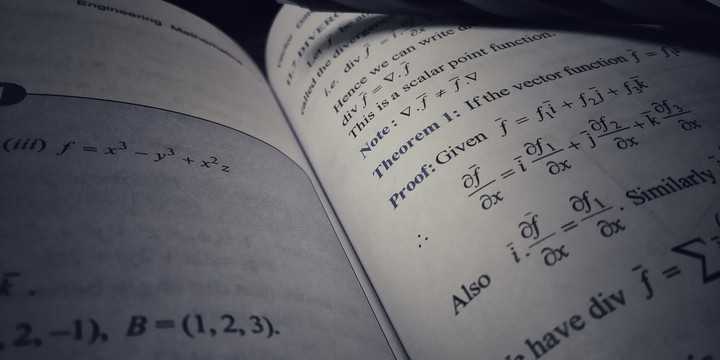 Engineering Mathematics
(iii) f = x³ − y³ + x²z
k̄ .
, 2, −1), B = (1, 2, 3).
11.7 DIVER
called the divergen
i.e. div f̄ = ∇.f̄
Hence we can write di
div f̄ = ∇.f̄
This is a scalar point function.
Note : ∇.f̄ ≠ f̄.∇
Theorem 1: If the vector function f̄ = f₁ī
Proof: Given f̄ = f₁ī + f₂j̄ + f₃k̄
∂f̄/∂x = ī ∂f₁/∂x + j̄ ∂f₂/∂x + k̄ ∂f₃/∂x
∴ ī. ∂f̄/∂x = ∂f₁/∂x . Similarly
Also
have div f̄ = ∑